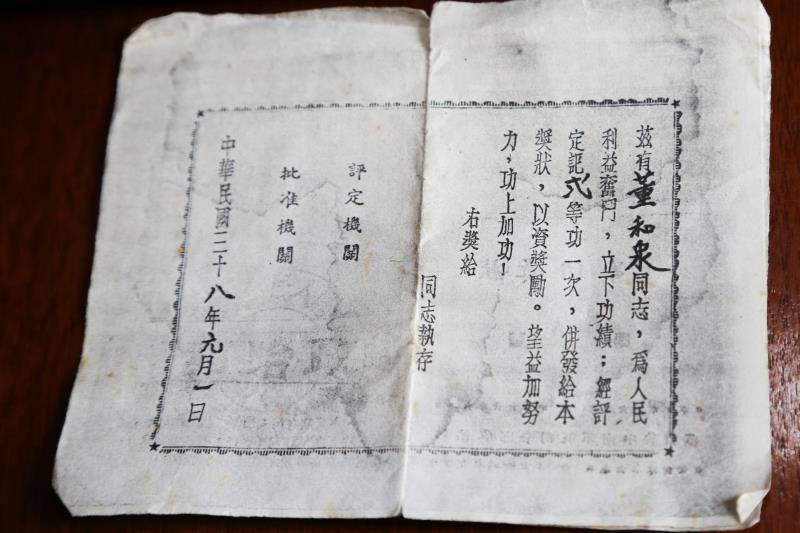 茲有董和泉同志，為人民
利益奮鬥，立下功績；經評
定記弍等功一次，併發給本
獎狀，以資獎勵。望益加努
力，功上加功！
右獎給
同志執存
評定機關
批准機關
中華民國三十八年元月一日